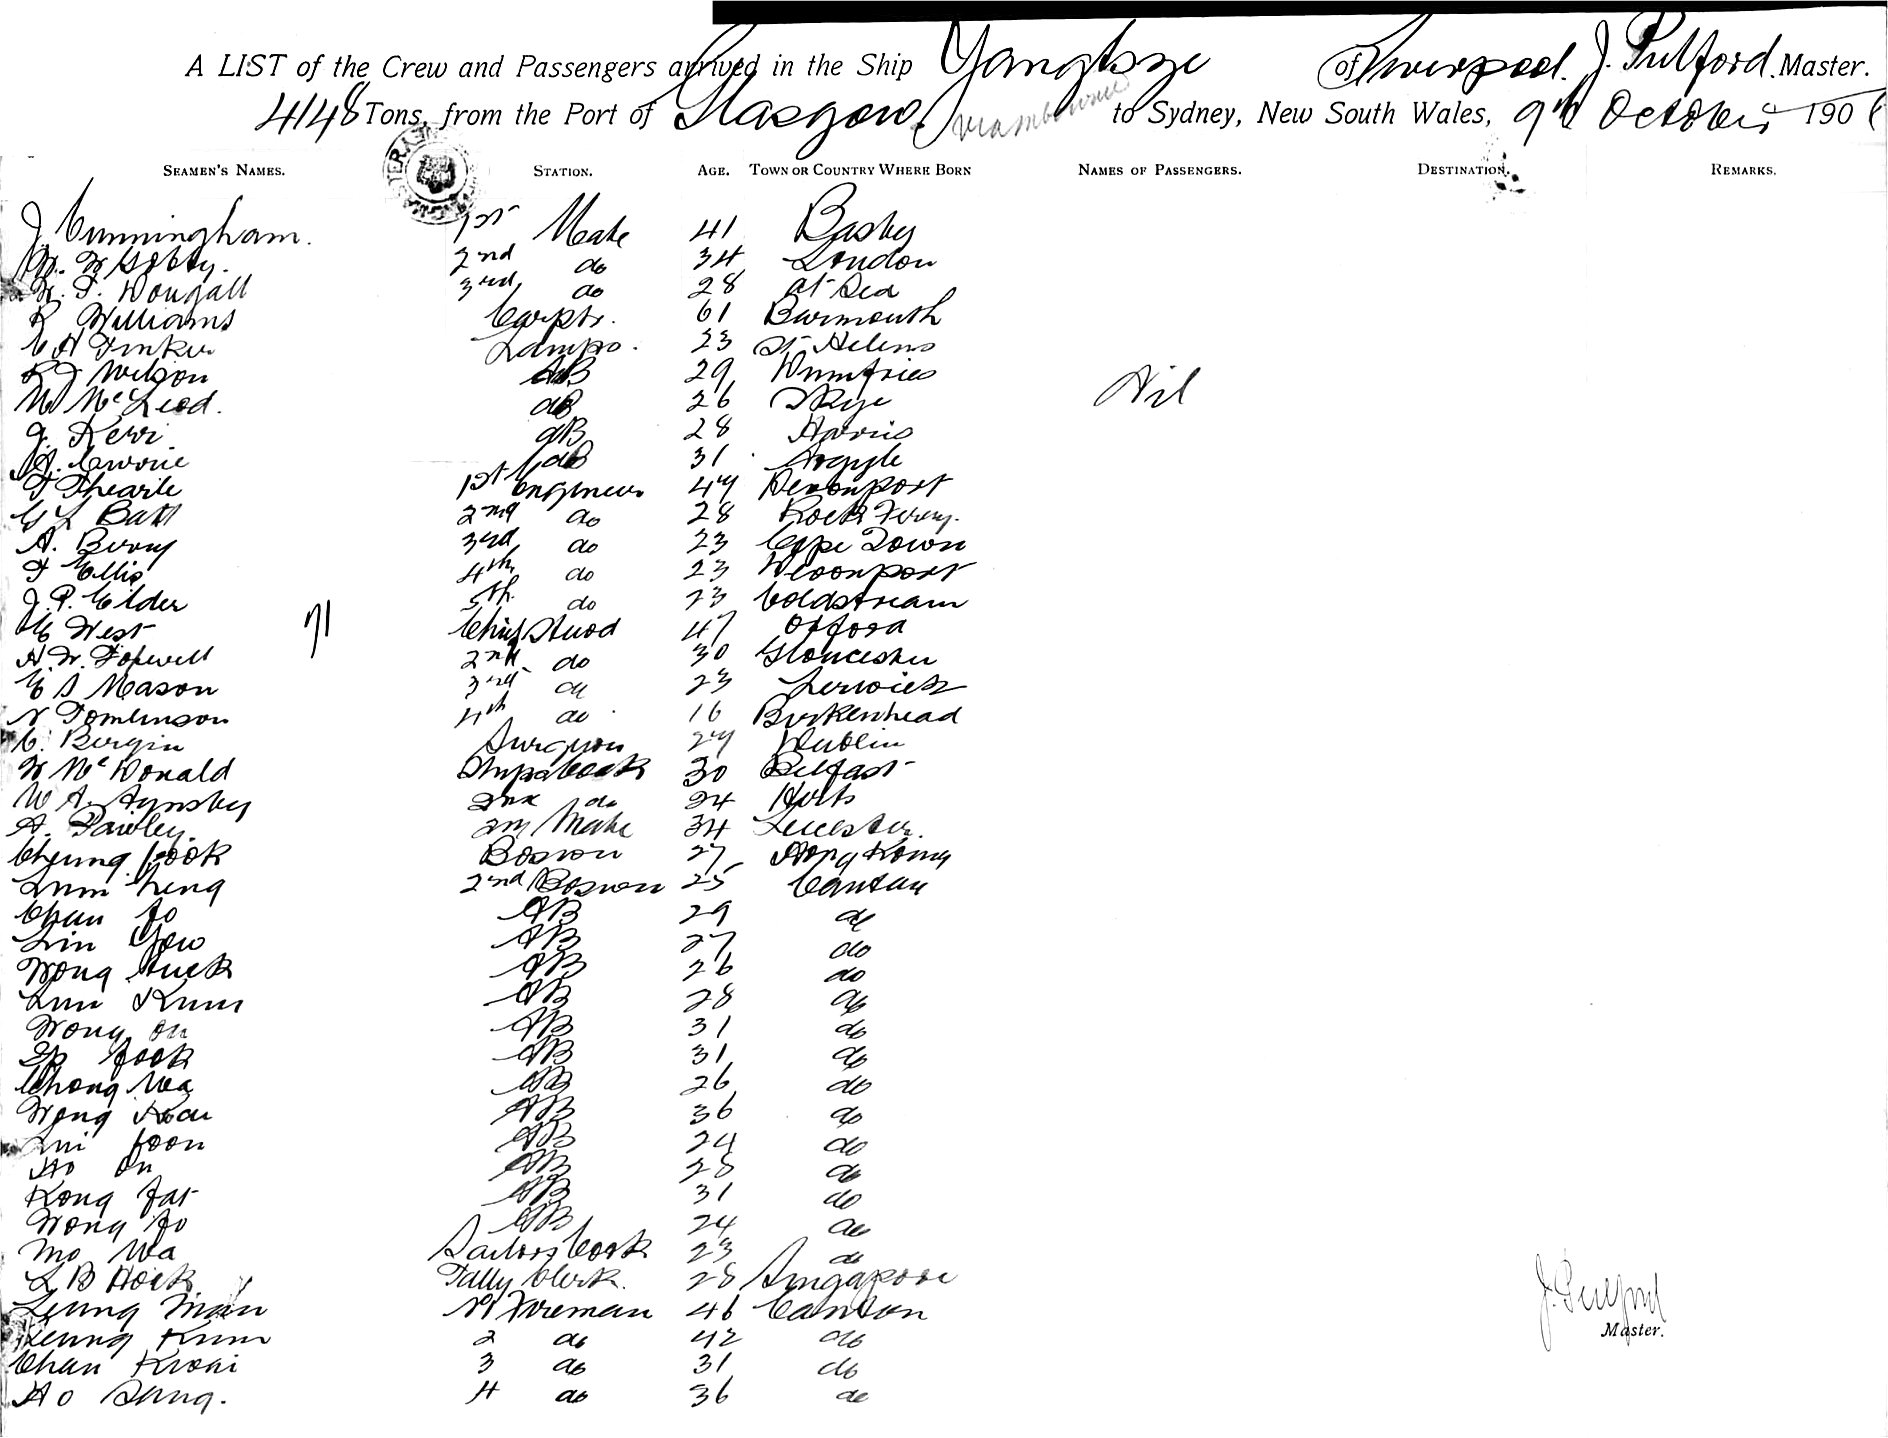 A LIST of the Crew and Passengers arrived in the Ship Yangtsze of Liverpool. J. Pulford. Master.
4148 Tons, from the Port of Glasgow to Sydney, New South Wales, 9th October 190
SEAMEN'S NAMES. STATION. AGE. TOWN OR COUNTRY WHERE BORN NAMES OF PASSENGERS. DESTINATION. REMARKS.
J Cunningham. 1st Mate 41 Busby
2nd do 34 London
Dougall 3rd do 28 at Sea
R Williams Carptr. 61 Barmouth
C H Tinker Lamps. 23 St Helens
Wilson AB 29 Dumfries
N McLeod. AB 26 Skye
Nil
J. Kerr AB 28 Harris
A. Currie AB 31 Argyle
T Thearle 1st Engineer 47 Devonport
G L Batt 2nd do 28 Rock Ferry.
A. Berry 3rd do 23 Cape Town
F Ellis 4th do 23 Devonport
J. P. Elder 5th do 23 Coldstream
71
G West Chief Stwd 47 Oxford
H. W. Hopwell 2nd do 30 Gloucester
G S Mason 3rd do 23 Lerwick
N Tomlinson 4th do 16 Birkenhead
C. Bergin Surgeon 27 Dublin
W McDonald Ships Cook 30 Belfast
W A. 2nd do 24 Herts
A. Pawley. Mate 34 Leicester.
Cheung Fook Boswn 27 Hong Kong
Lum Keng 2nd Boswn 25 Canton
Chan Fo AB 29 do
Lin Yow AB 27 do
Wong Suck AB 26 do
Lum Kum AB 28 do
Wong On AB 31 do
Ip Fook AB 31 do
Chong Wa AB 26 do
Wong AB 36 do
Lui Foon AB 24 do
Ho On AB 28 do
Kong Fat AB 31 do
Wong Fo AB 24 do
Mo Wa Sailors Cook 23 do
L B Hock Tally Clerk. 28 Singapore
Leung Man No 1 Fireman 46 Canton
Leung Kum 2 do 42 do
Chan Kwai 3 do 31 do
Ho Sang. 4 do 36 do
J. Pulford
Master.